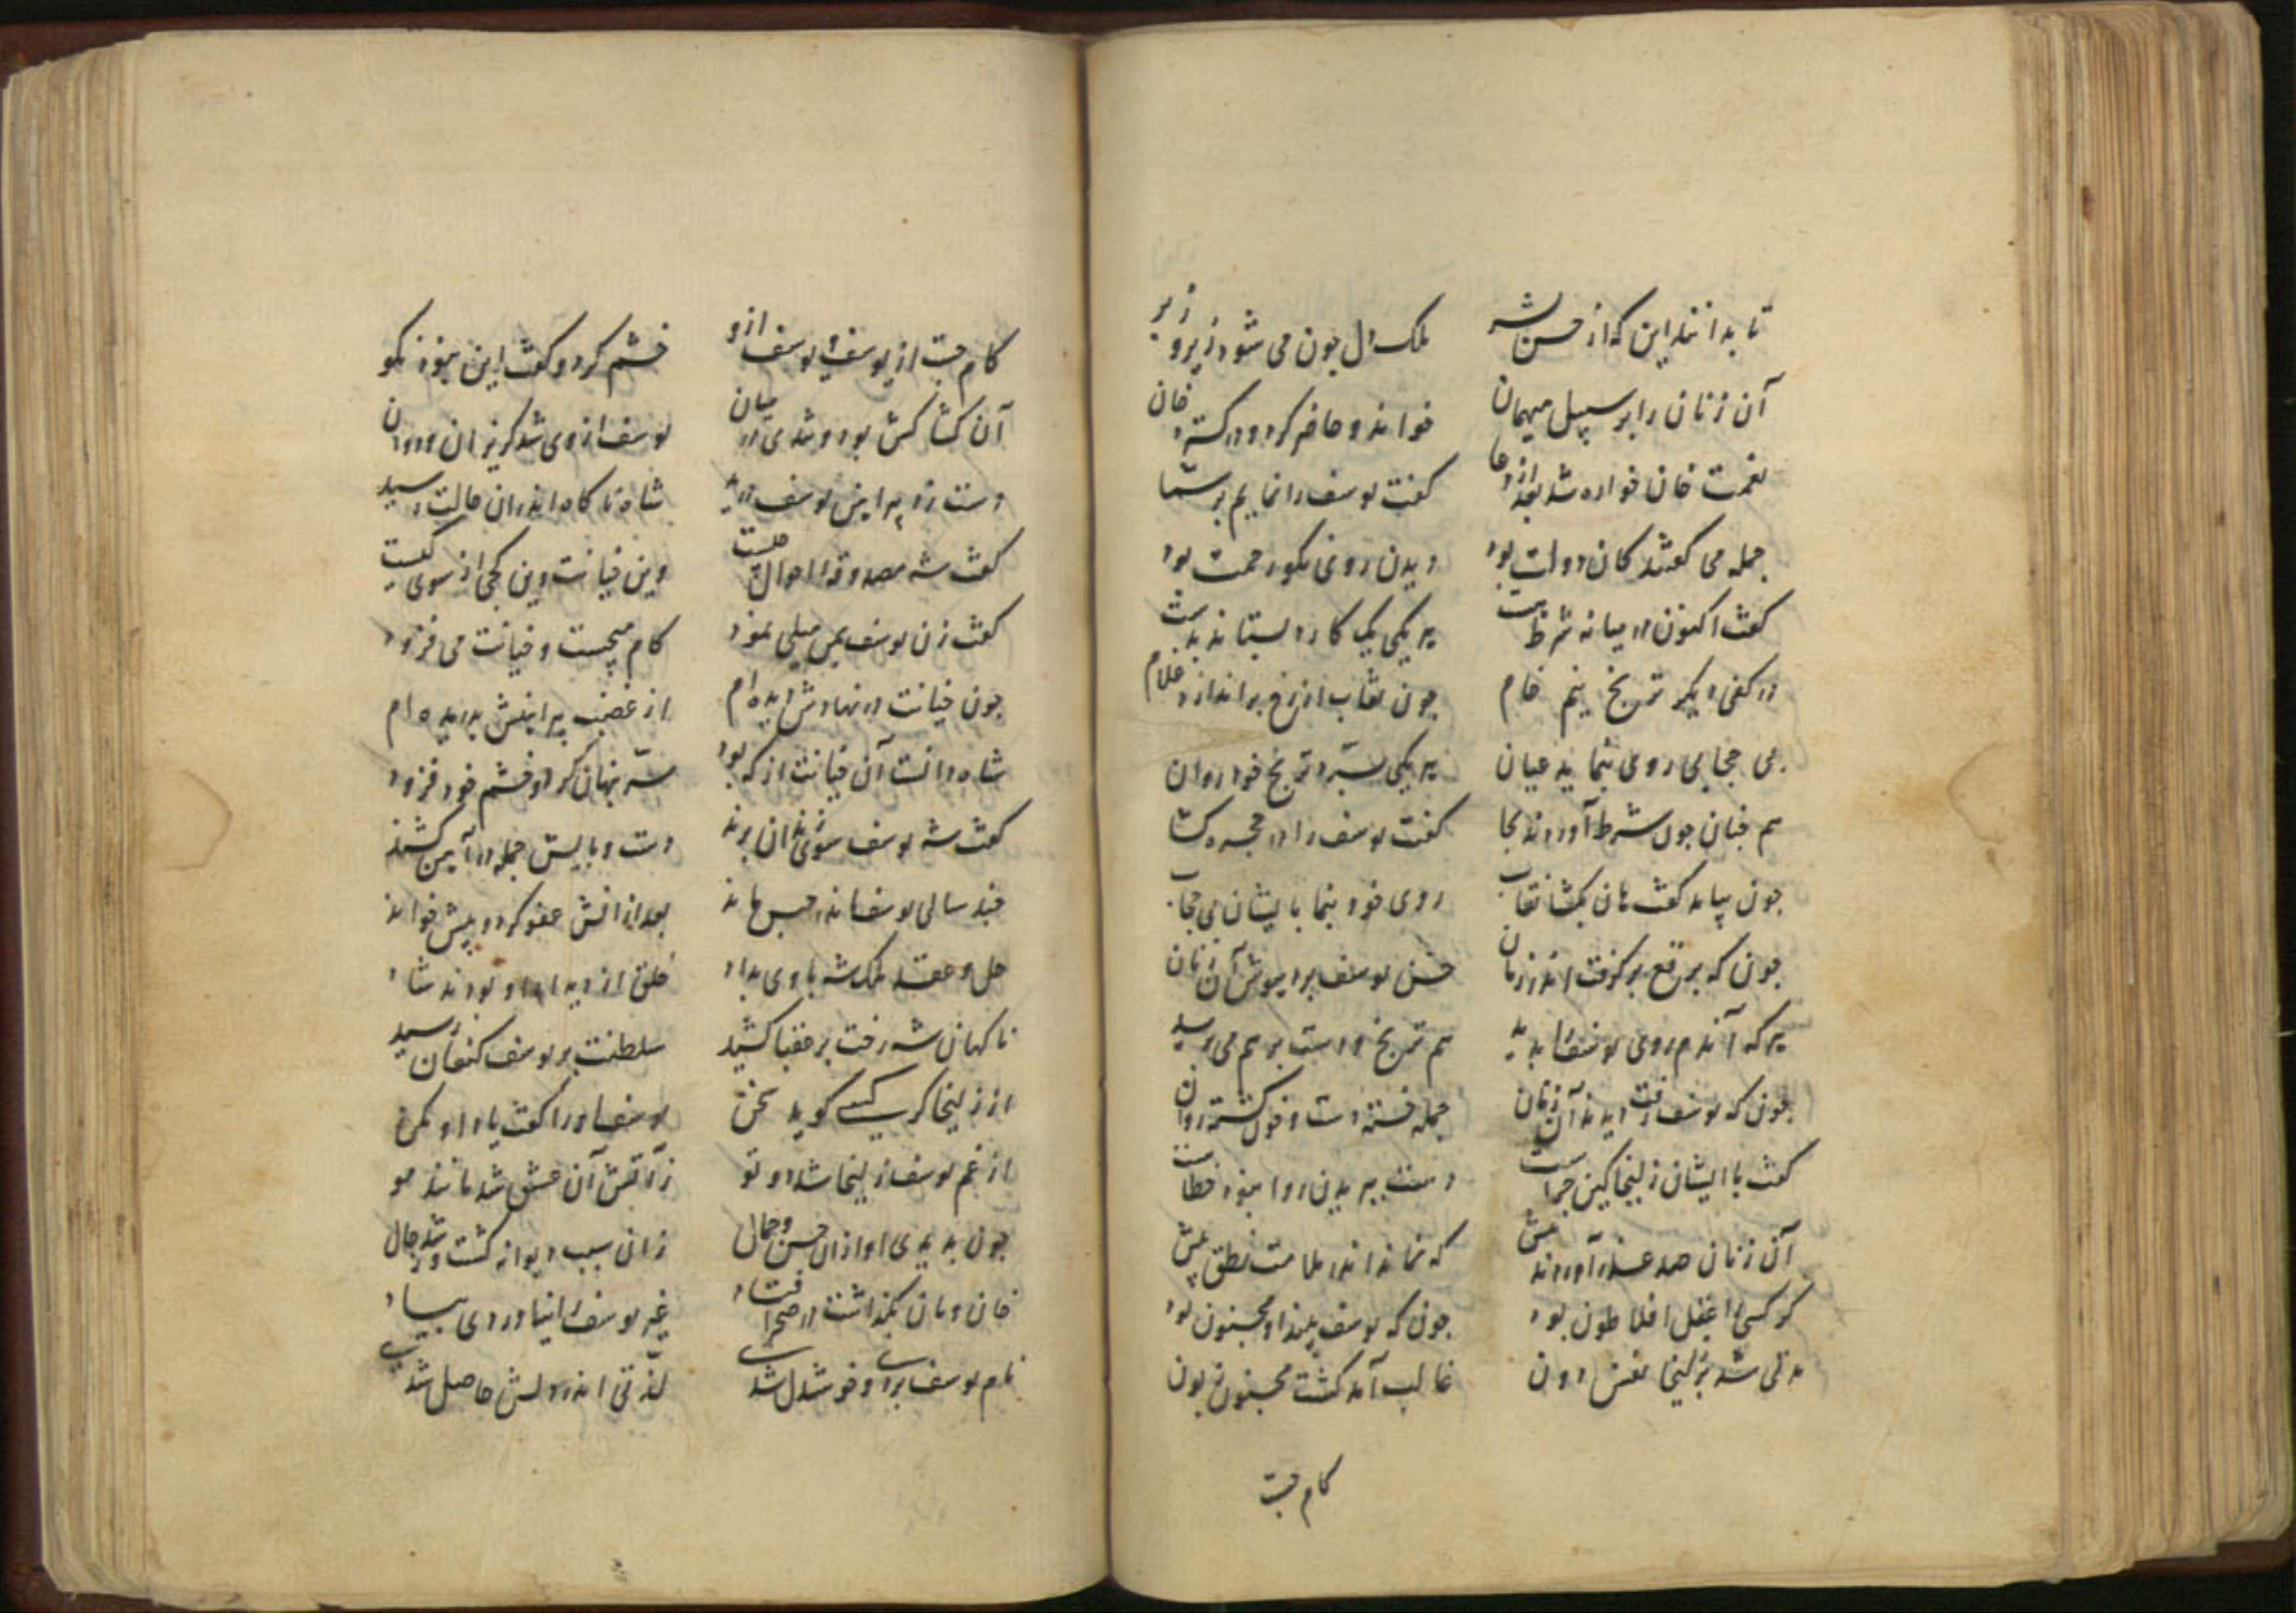 تا بدانند این که از حسن شه ملک دل چون می شود زیر و زبر
آن زنان را بر سبیل میهمان خواند و حاضر کرد و در گسترد خان
نعمت خان خورده شد بعد از دعا گفت یوسف را نمایم بر شما
جمله می گفتند کان دولت بود دیدن روی نکو رحمت بود
گفت اکنون در میانه شرط هست هر یکی یک کارد بستاند بدست
در کفی دیگر ترنج نیم خام چون نقاب از رخ براندازد غلام
بی حجابی روی بنماید عیان هر یکی برد ترنج خود روان
هم چنان چون شرط آوردند بجا گفت یوسف را در حجره گشا
چون بیامد گفت هان بگشا نقاب روی خود بنما بایشان بی حجاب
چون که برقع برگرفت اندر زمان حسن یوسف برد هوش آن زنان
هر که آندم روی یوسف را بدید هم ترنج و دست بر هم می برید
چون که یوسف رفت دیدند آن زنان جمله خسته دست و خون گشته روان
گفت با ایشان زلیخا کین چراست دست ببریدن روا نبود خطاست
آن زنان صد عذر آوردند پیش که نماند اندر ملامت نطق پیش
گر کسی را عقل افلاطون بود چون که یوسف بیند او مجنون بود
مدتی شد بر زلیخا نفس دون غالب آمد گشت مجنون زبون
کام جست
کام جست از یوسف و یوسف ازو خشم کرد و گفت این نبود نکو
آن کشاکش بود و شدی در میان یوسف از وی شد گریزان و دوان
دست زد پیراهن یوسف درید شاه ناگاه اندران حالت رسید
گفت شه مصدوقه احوال چیست وین خیانت وین کجی از سوی کیست
گفت زن یوسف بمن میلی نمود کام میجست و خیانت می فزود
چون خیانت در نهادش دیده ام از غضب پیراهنش بدریده ام
شاه دانست آن خیانت از که بود ستر پنهان کرد و خشم خود فزود
گفت شه یوسف سوی زندان برند دست و پایش جمله در آهن کشند
چند سالی یوسف اندر حبس ماند بعد از آنش عفو کرد و پیش خواند
حل و عقد ملک شه با وی بداد خلق از دیدار او بودند شاد
ناگهان شه رخت بر عقبا کشید سلطنت بر یوسف کنعان رسید
از زلیخا گر کسی گوید سخن یوسف او را گفت یاد او مکن
از غم یوسف زلیخا شد دو تو ز آتش آن عشق شد مانند مو
چون بدیدی او ازان حسن و جمال زان سبب دیوانه گشت و شد ز حال
خان و مان بگذاشت در صحرا فتاد غیر یوسف را نیاوردی بیاد
نام یوسف بردی و خوشدل شدی لذتی اندر دلش حاصل شدی